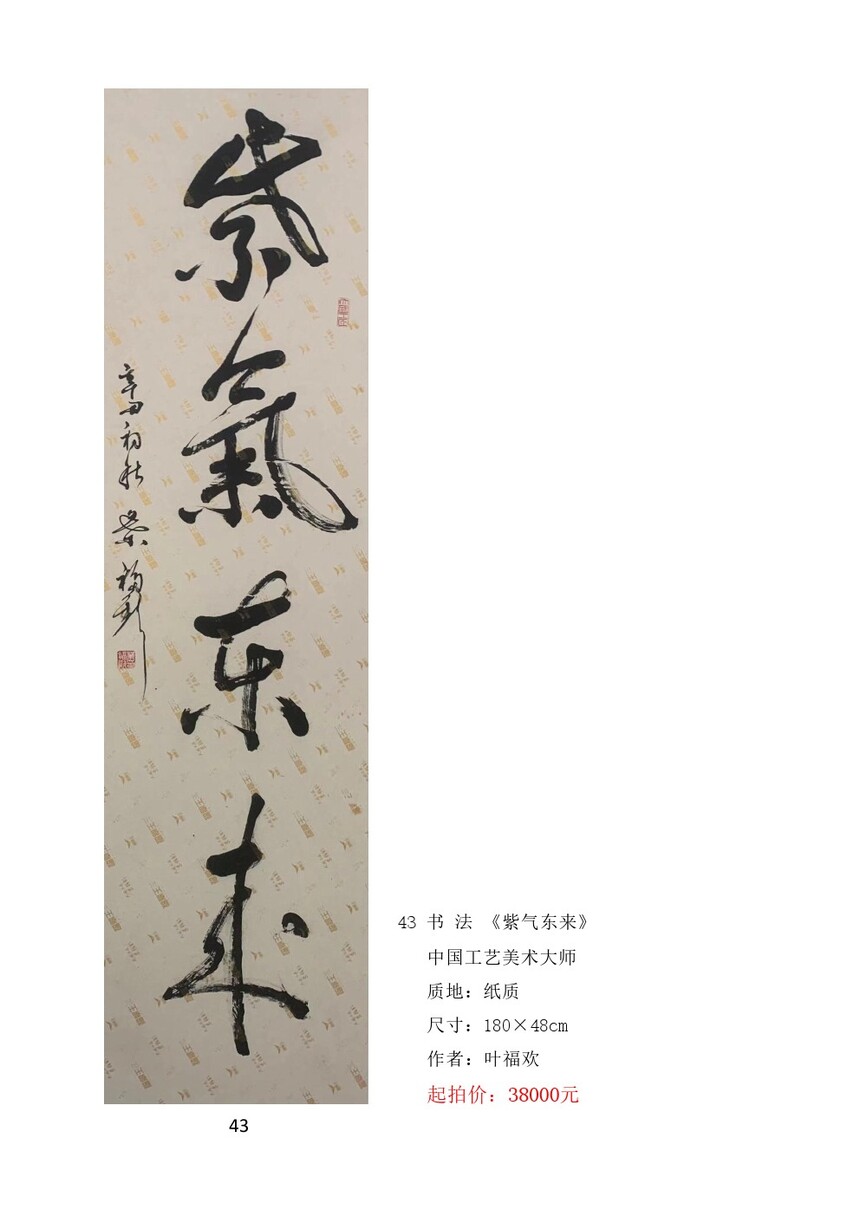 紫氣东来
辛丑初秋 葉福歡
43 书 法 《紫气东来》
中国工艺美术大师
质地：纸质
尺寸：180×48cm
作者：叶福欢
起拍价：38000元
43